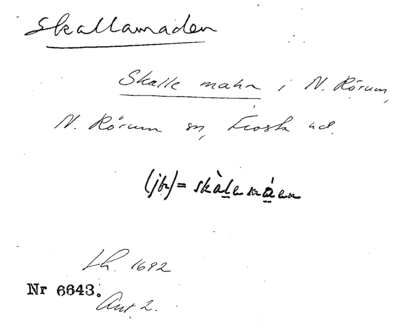 Skallamaden
Skalle mahn i N. Rörum,
N. Rörum sn, Frosta hd.
(jbr) = skàle máen
Lh. 1692
Nr 6643.
Ant 2.